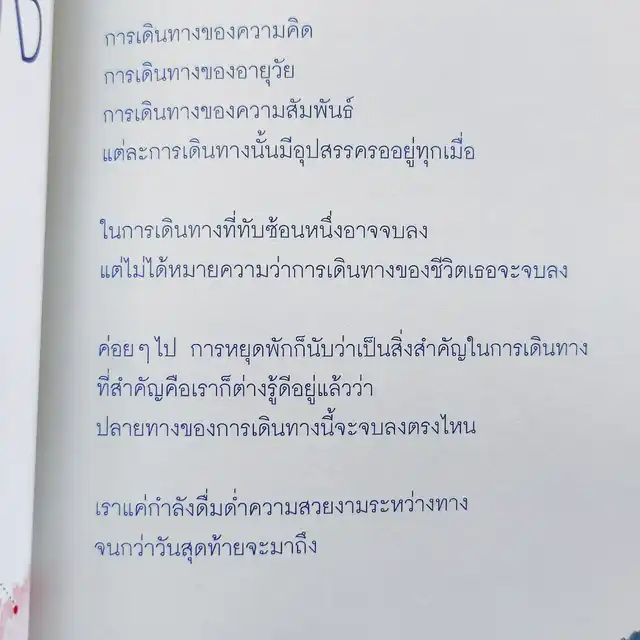 การเดินทางของความคิด
การเดินทางของอายุวัย
การเดินทางของความสัมพันธ์
แต่ละการเดินทางนั้นมีอุปสรรครออยู่ทุกเมื่อ
ในการเดินทางที่ทับซ้อนหนึ่งอาจจบลง
แต่ไม่ได้หมายความว่าการเดินทางของชีวิตเธอจะจบลง
ค่อยๆไป การหยุดพักก็นับว่าเป็นสิ่งสำคัญในการเดินทาง
ที่สำคัญคือเราก็ต่างรู้ดีอยู่แล้วว่า
ปลายทางของการเดินทางนี้จะจบลงตรงไหน
เราแค่กำลังดื่มด่ำความสวยงามระหว่างทาง
จนกว่าวันสุดท้ายจะมาถึง